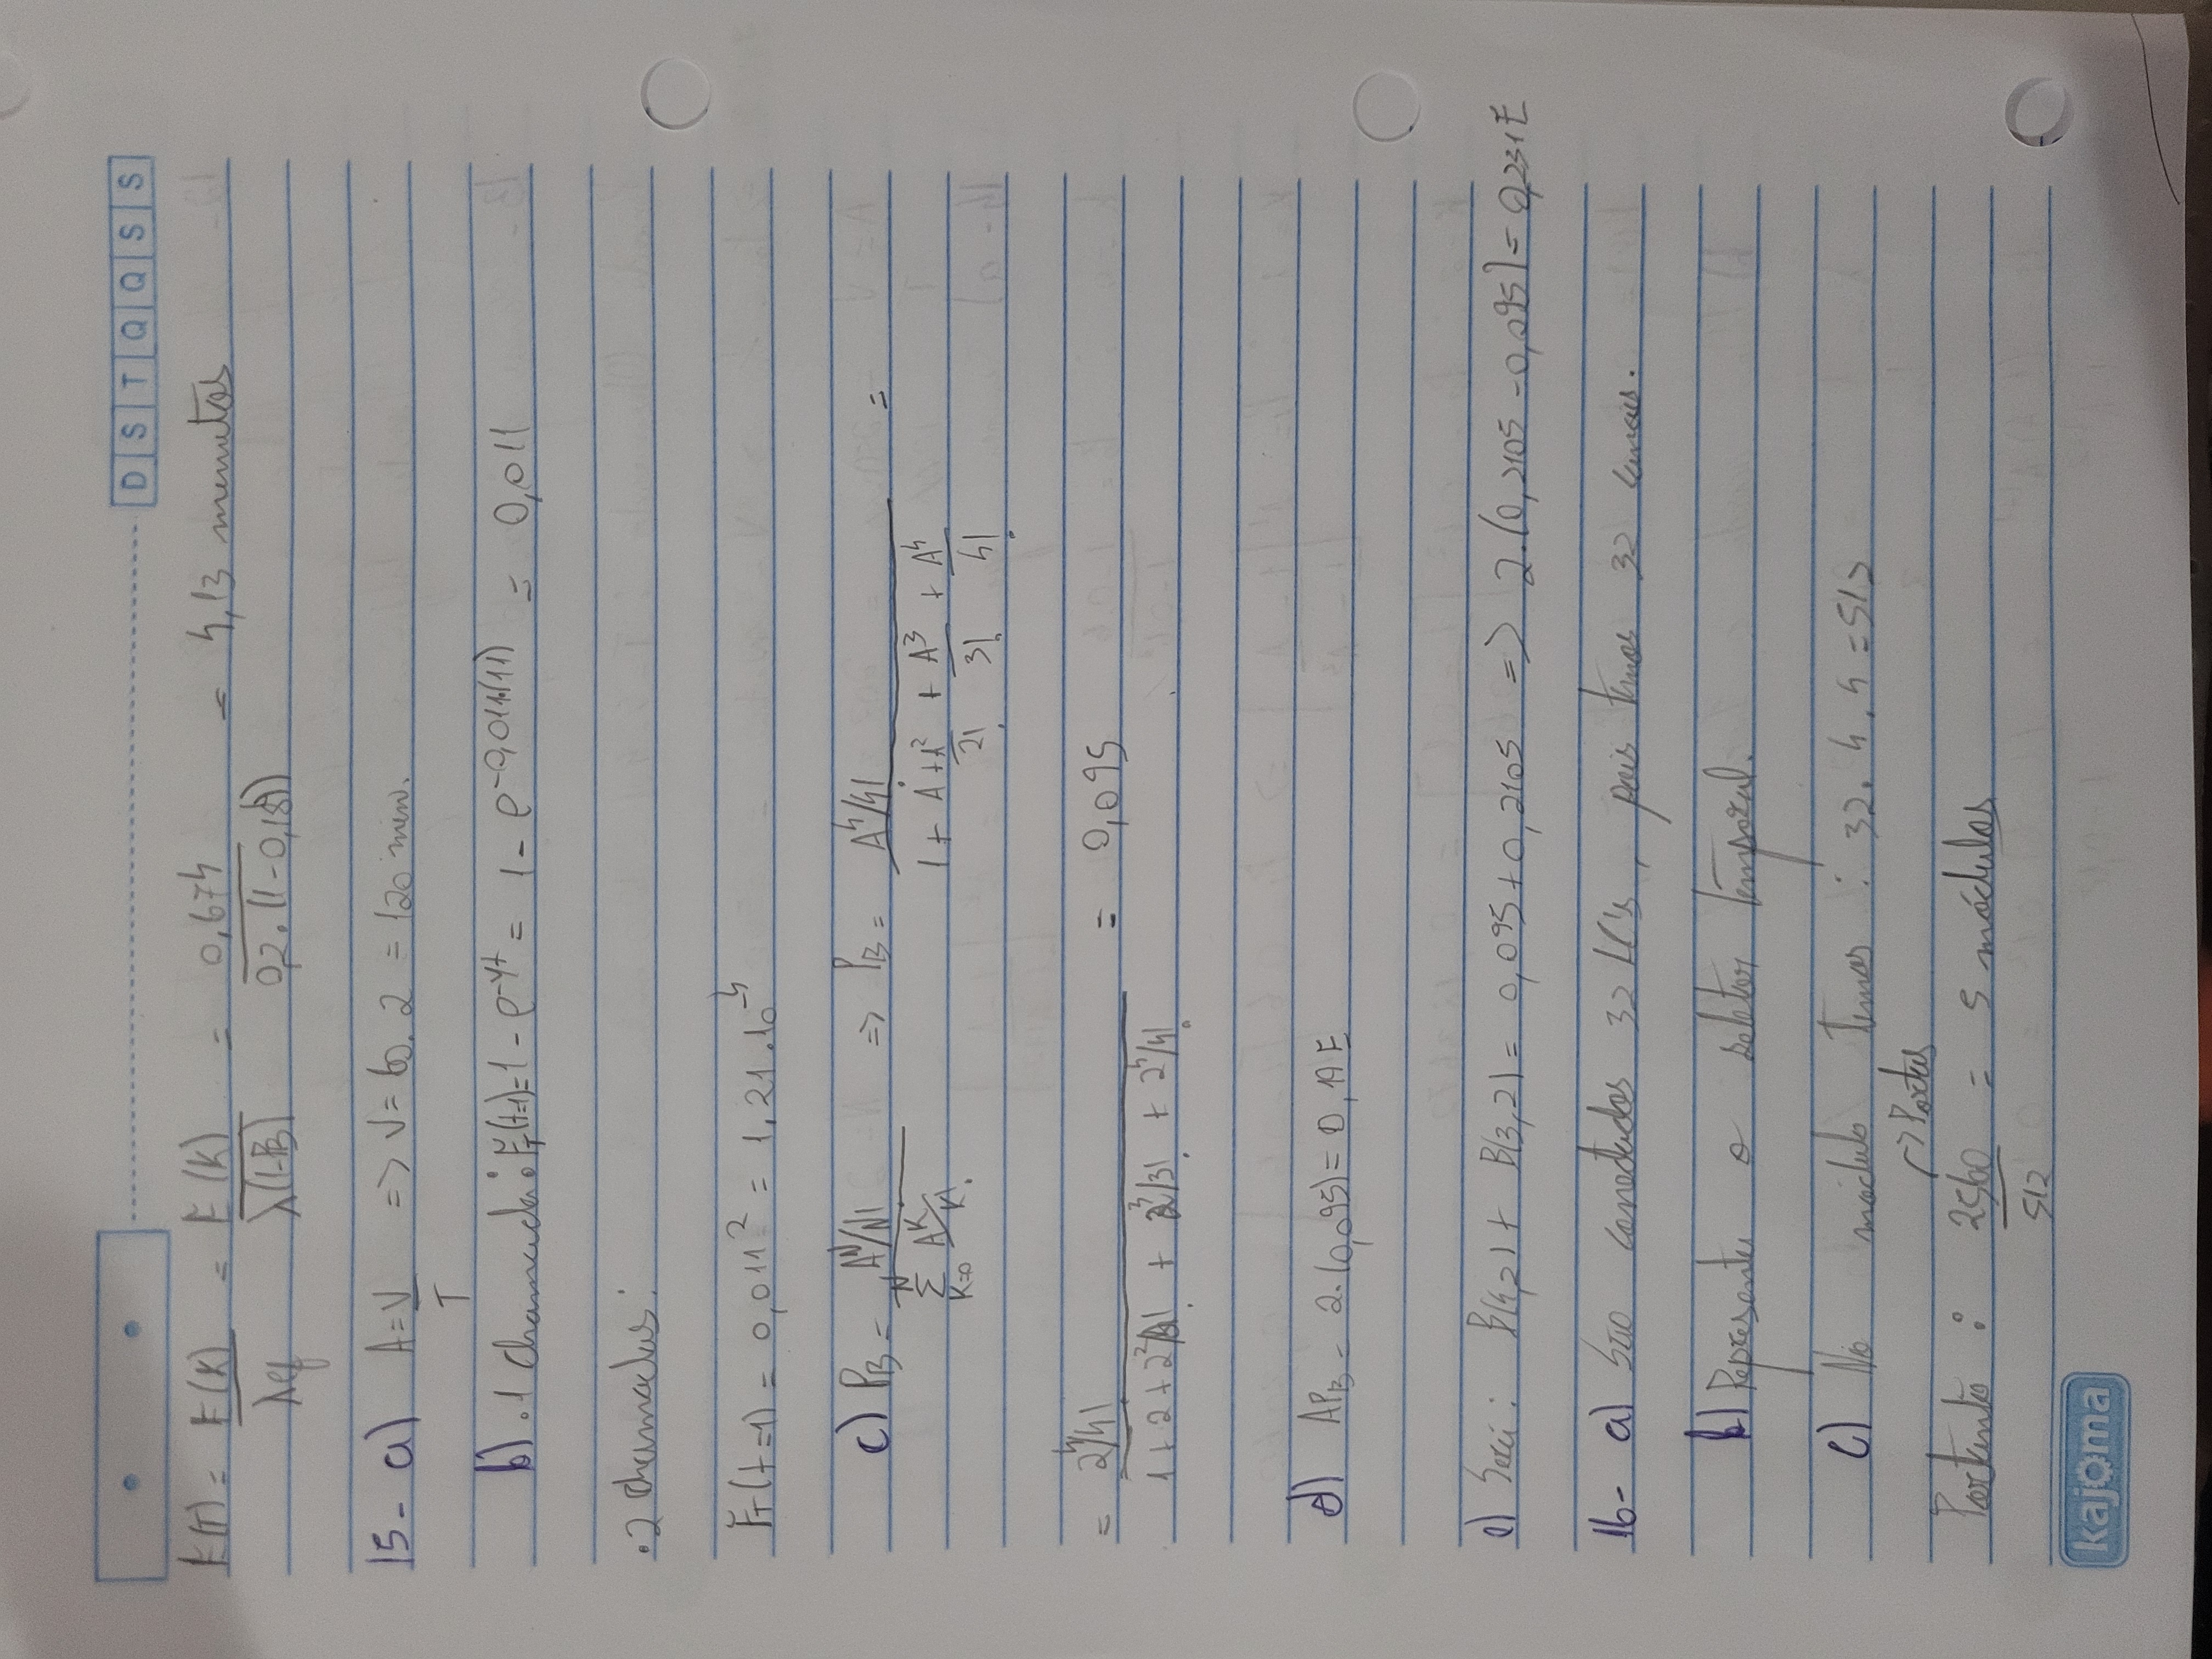 D S T Q Q S S
E(T) = E(K)/λef = E(K)/λ(1-PB) = 0,674/0,2.(1-0,184) = 4,13 minutos
15- a) A = V/T => V = 60. 2 = 120 min.
b) .1 chamada: FT(t=1) = 1 - e^-γt = 1 - e^-0,011.(1) = 0,011
.2 chamadas:
FT(t=1) = 0,011² = 1,21.10^-4
c) PB = A^N/N! / Σ K=0 N A^K/K! => PB = A^4/4! / 1 + A + A²/2! + A³/3! + A^4/4! =
= 2^4/4! / 1 + 2 + 2²/2! + 2³/3! + 2^4/4! = 0,095
d) APB = 2.(0,095) = 0,19 E
e) Será: B(4,2) + B(3,2) = 0,095 + 0,2105 => 2.(0,2105 - 0,095) = 0,231 E
16- a) São conectados 32 LC's, pois temos 32 canais.
b) Representa o seletor temporal.
c) No módulo temos : 32. 4. 4 = 512
-> Portas
Portanto : 2560/512 = 5 módulos
kajoma